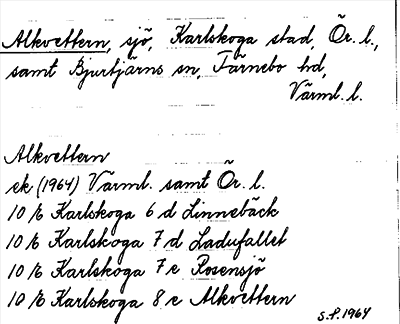 Alkvettern, sjö, Karlskoga stad, Ör. l.,
samt Bjurtjärns sn, Färnebo hd,
Värml. l.
Alkvettern
ek (1964) Värml. samt Ör. l.
10 E Karlskoga 6 d Linnebäck
10 E Karlskoga 7 d Ladufallet
10 E Karlskoga 7 e Rosensjö
10 E Karlskoga 8 e Alkvettern
S.F. 1964